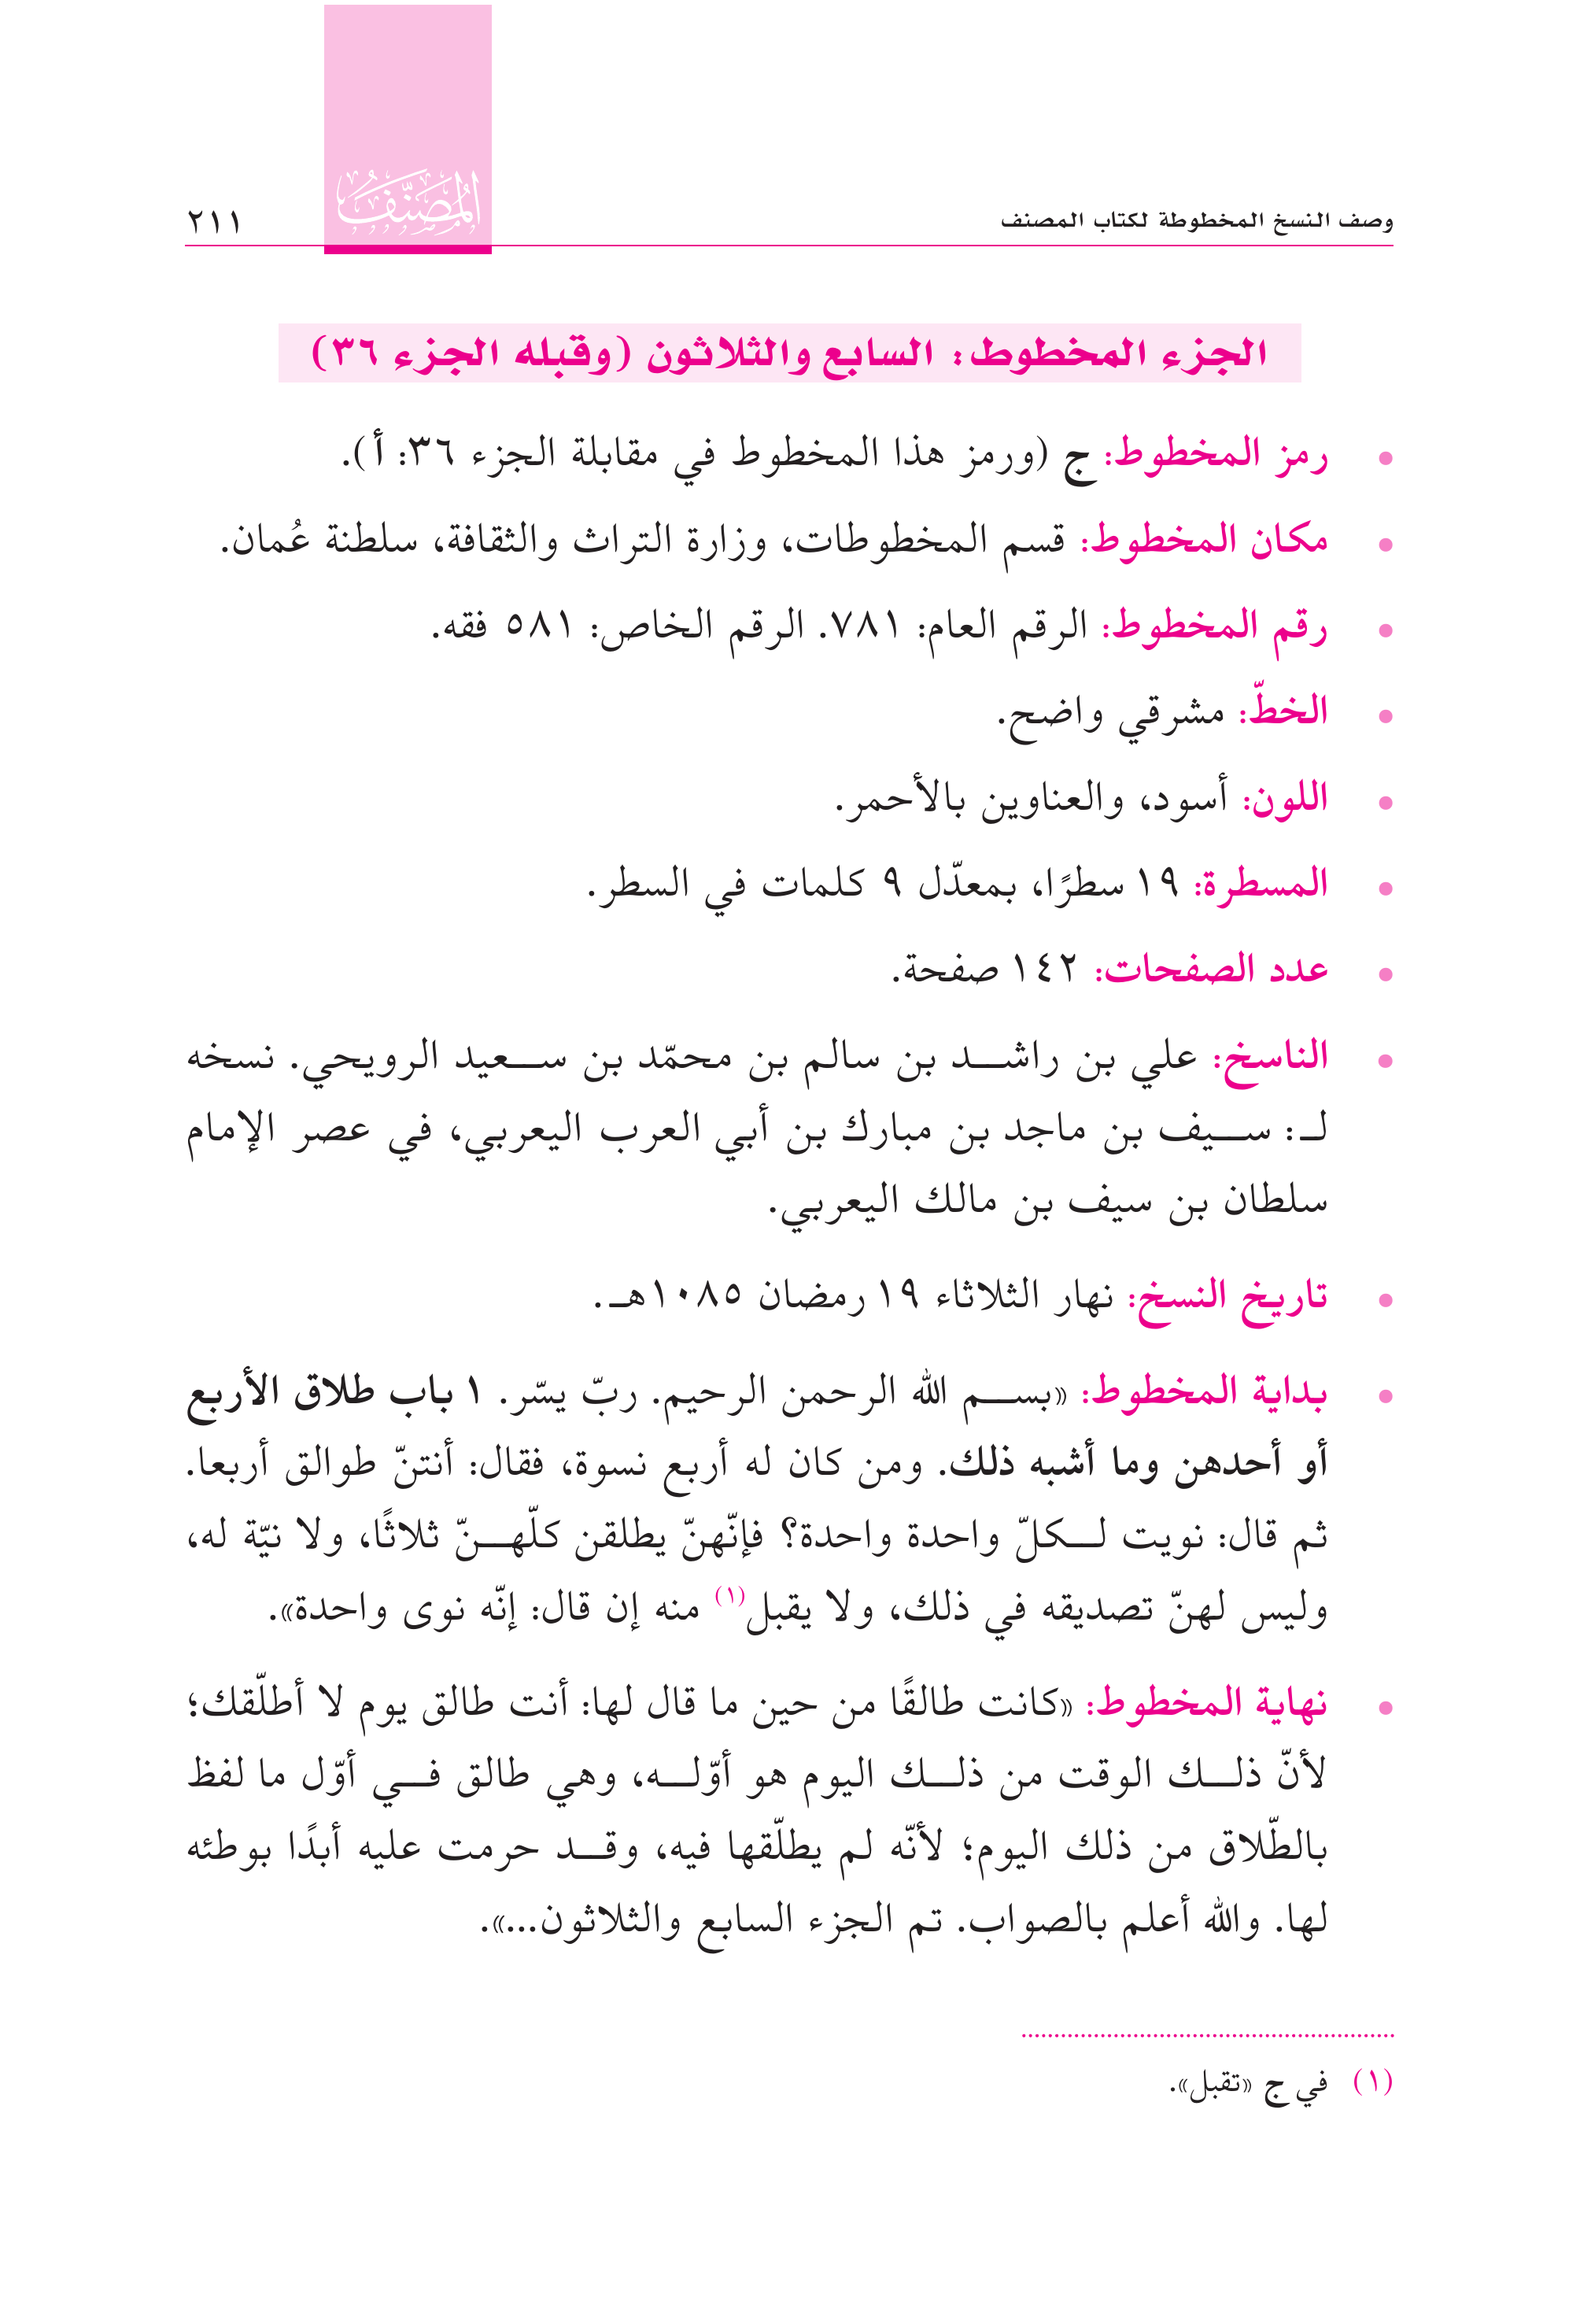 وصف النسخ المخطوطة لكتاب المصنف
المصنّف
٢١١
الجزء المخطوط: السابع والثلاثون (وقبله الجزء ٣٦)
• رمز المخطوط: ج (ورمز هذا المخطوط في مقابلة الجزء ٣٦: أ).
• مكان المخطوط: قسم المخطوطات، وزارة التراث والثقافة، سلطنة عُمان.
• رقم المخطوط: الرقم العام: ٧٨١. الرقم الخاص: ٥٨١ فقه.
• الخطّ: مشرقي واضح.
• اللون: أسود، والعناوين بالأحمر.
• المسطرة: ١٩ سطرًا، بمعدّل ٩ كلمات في السطر.
• عدد الصفحات: ١٤٢ صفحة.
• الناسخ: علي بن راشد بن سالم بن محمّد بن سعيد الرويحي. نسخه
لـ: سيف بن ماجد بن مبارك بن أبي العرب اليعربي، في عصر الإمام
سلطان بن سيف بن مالك اليعربي.
• تاريخ النسخ: نهار الثلاثاء ١٩ رمضان ١٠٨٥هـ.
• بداية المخطوط: «بسم الله الرحمن الرحيم. ربّ يسّر. ١ باب طلاق الأربع
أو أحدهن وما أشبه ذلك. ومن كان له أربع نسوة، فقال: أنتنّ طوالق أربعا.
ثم قال: نويت لكلّ واحدة واحدة؟ فإنّهنّ يطلقن كلّهنّ ثلاثًا، ولا نيّة له،
وليس لهنّ تصديقه في ذلك، ولا يقبل(١) منه إن قال: إنّه نوى واحدة».
• نهاية المخطوط: «كانت طالقًا من حين ما قال لها: أنت طالق يوم لا أطلّقك؛
لأنّ ذلك الوقت من ذلك اليوم هو أوّله، وهي طالق في أوّل ما لفظ
بالطّلاق من ذلك اليوم؛ لأنّه لم يطلّقها فيه، وقد حرمت عليه أبدًا بوطئه
لها. والله أعلم بالصواب. تم الجزء السابع والثلاثون...».
(١) في ج «تقبل».